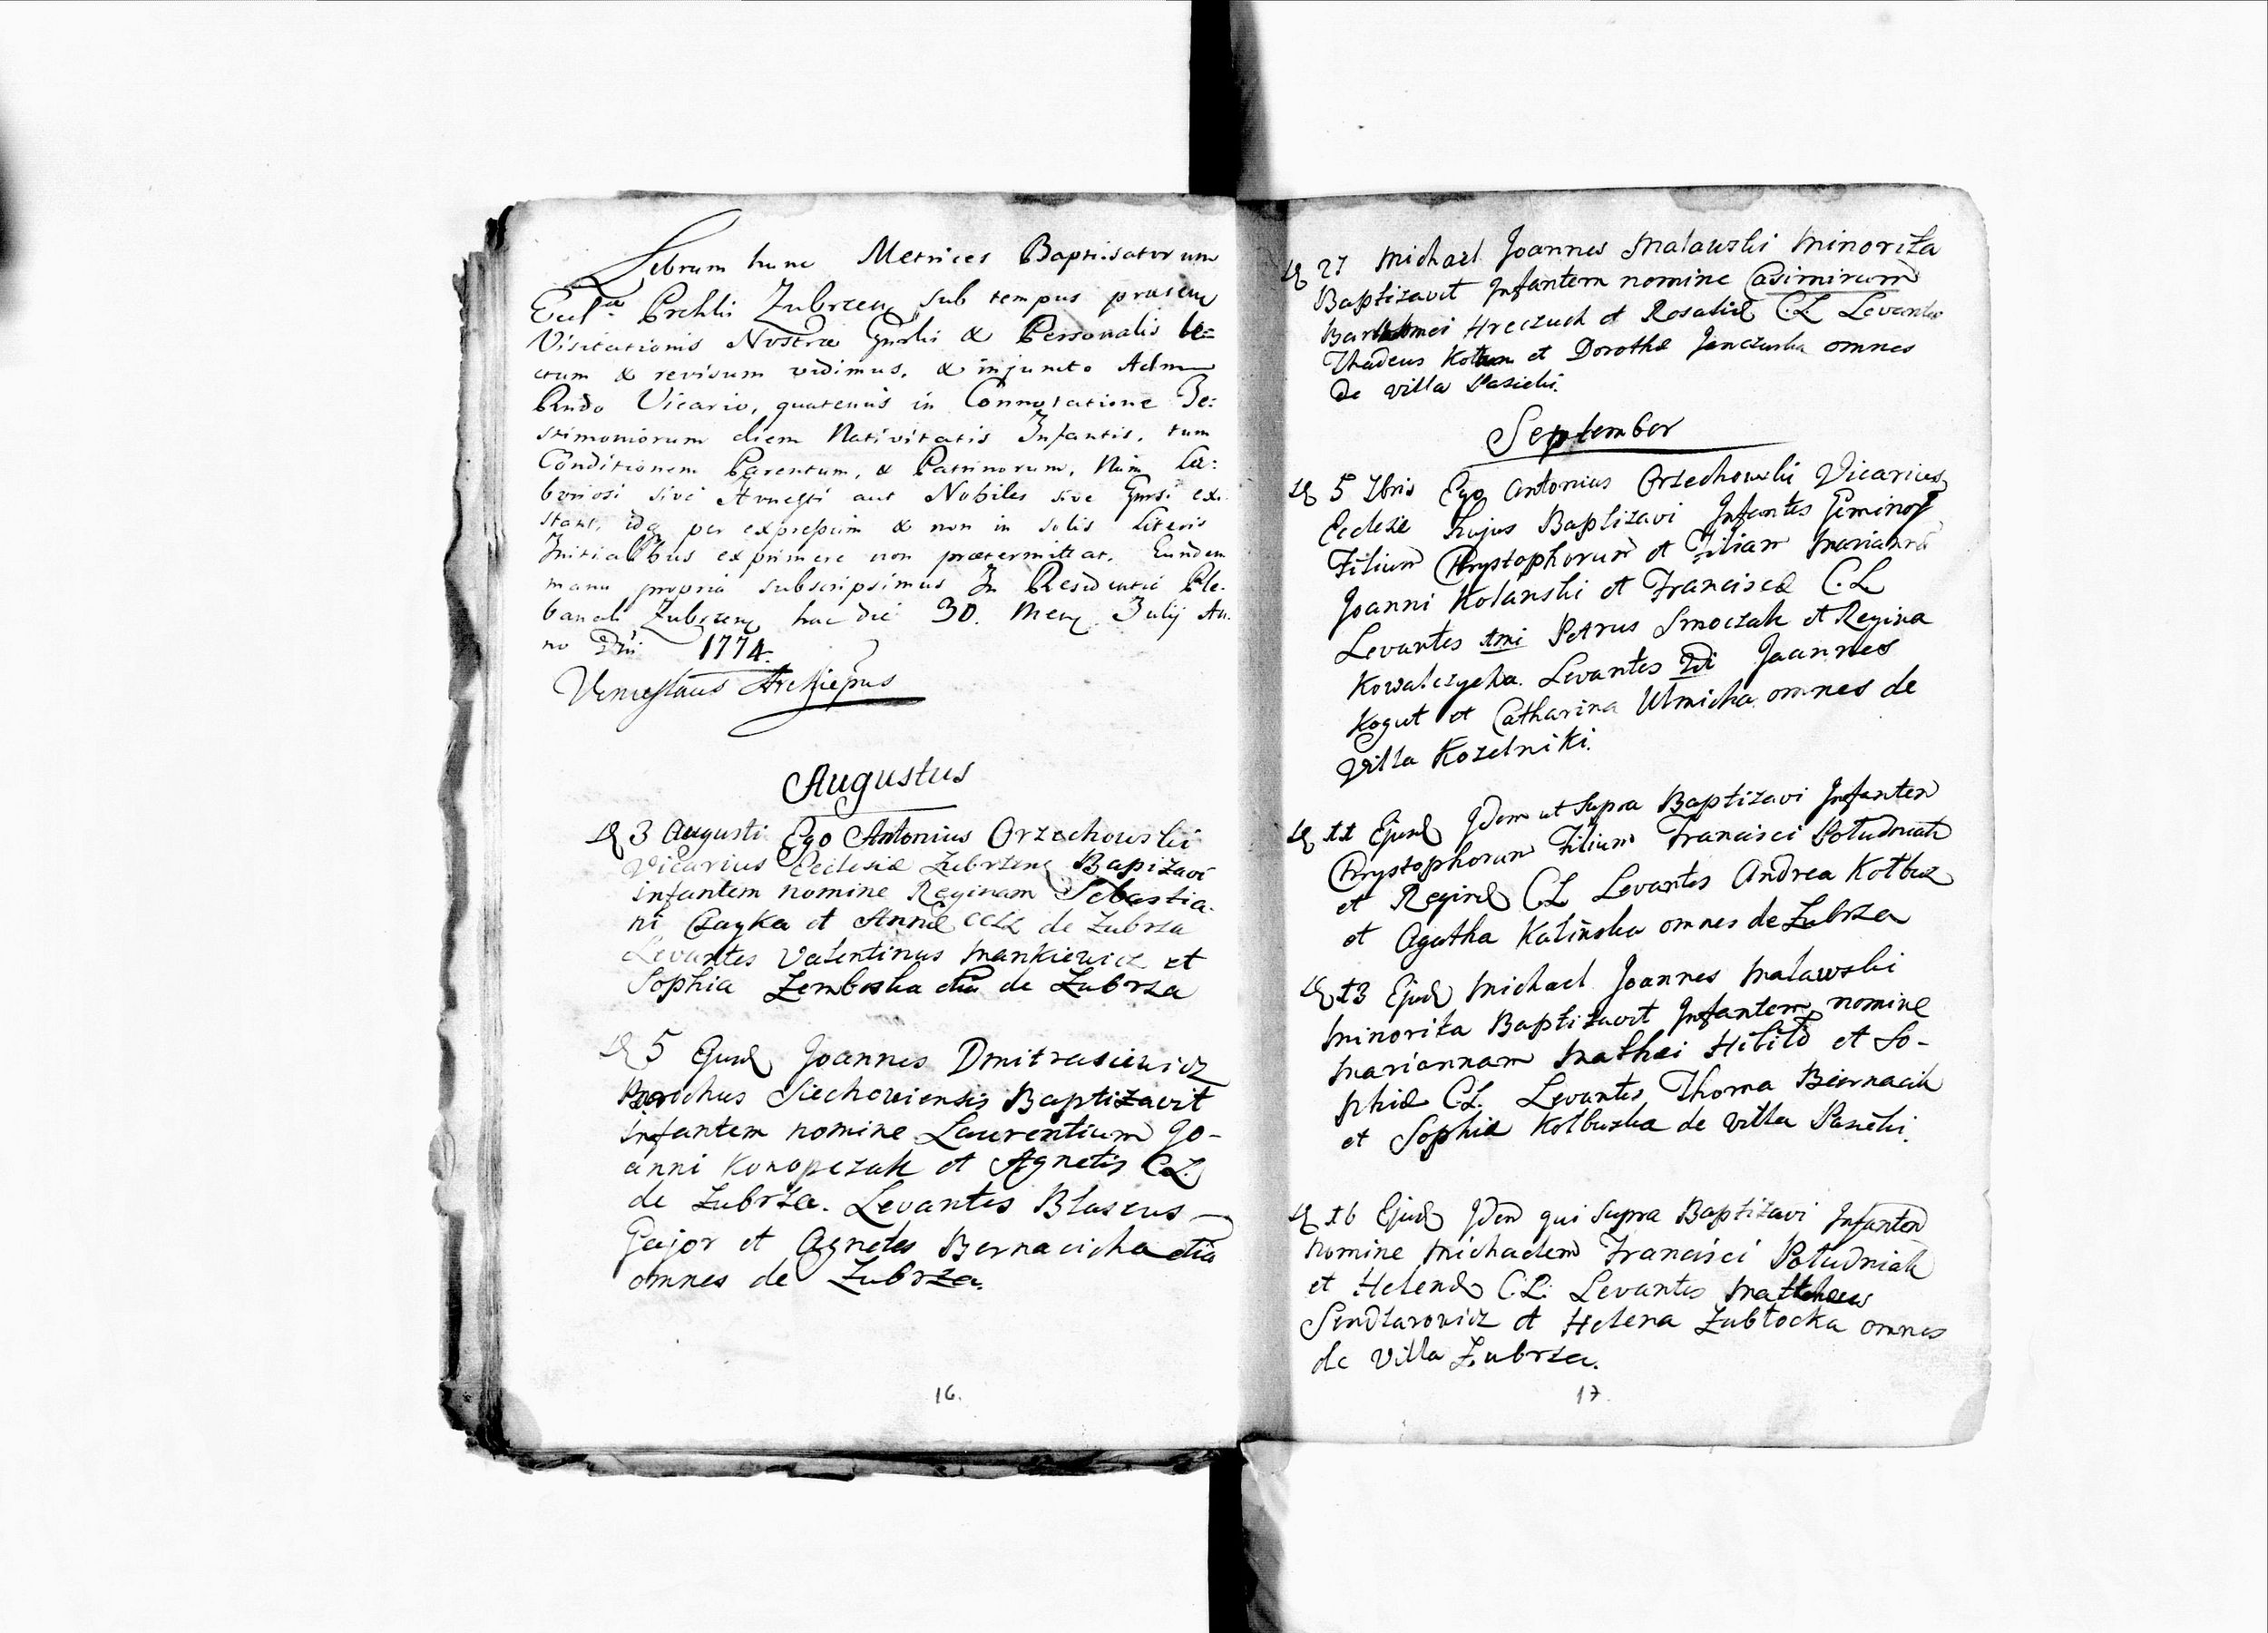 Librum hunc Metrices Baptisatorum
Eccl.æ Prchlis Zubrzen sub tempus præsen
Visitationis Nostræ Gnrlis & Personalis le=
ctum & revisum vidimus, & injuncto Adm
Rndo Vicario, quatenus in Connotatione Te=
stimoniorum diem Nativitatis Infantis, tum
Conditionem Parentum, & Patrinorum, Num La=
boriosi sive Honesti aut Nobiles sive Gnrsi ex=
stant, idq per expressum & non in solis Literis
Initialibus exprimere non prætermittat. Eundem
manu propria subscripsimus In Residentia Ple=
banali Zubrzen hac die 30. Men Julij An=
no Dni 1774.
Venceslaus Archiepus
Augustus
D 3 Augusti Ego Antonius Orzechowski
Vicarius Ecclesiæ Zubrzens Bapizavi
infantem nomine Reginam Sebastia-
ni Czayka et Annæ CCLL de Zubrza
Levantes Valentinus Mankiewicz et
Sophia Zemboska de Zubrza
D 5 Ejusd Joannes Dmitrasiewicz
Parochus Siechoviensis Baptizavit
infantem nomine Laurentium Jo-
anni Konopczak et Agnetis C.L.
de Zubrza. Levantes Blasius
Gajor et Agnetes Bernacicha
omnes de Zubrza.
16.
D 27 Michael Joannes Malawski Minorita
Baptizavit Infantem nomine Casimirum
Bartholomei Hreczuch et Rosaliæ C.L. Levantes
Thadeus Kotun et Dorothæ Janczuska omnes
de villa Pasieki.
September
D 5 7bris Ego Antonius Orzechowski Vicarius
Eclesiæ hujus Baptizavi Infantes Geminos
Filium Chrystophorum et Filiam Mariannã
Joanni Kolanski et Franciscæ C.L.
Levantes 1mi Petrus Smoczak et Regina
Kowalczycha. Levantes 2di Joannes
Kogut et Catharina Ulmicha omnes de
Villa Kozelniki.
D 11 Ejusd Idem ut Supra Baptizavi Infantem
Chrystophorum Filium Francisci Poludniak
et Reginæ C.L. Levantes Andrea Kolbuz
et Agatha Kalinska omnes de Zubrza
D 13 Ejusd Michael Joannes Malawski
Minorita Baptizavit Infantem nomine
Mariannam Mathei Hibild et So-
phiæ C.L. Levantes Thoma Biernacik
et Sophia Kolbuska de villa Pasieki.
D 16 Ejusd Idem qui Supra Baptizavi Infantem
Nomine Michaelem Francisci Poludniak
et Helenæ C.L. Levantes Mattheus
Sendzarowicz et Helena Zublocka omnes
de villa Zubrza.
17.